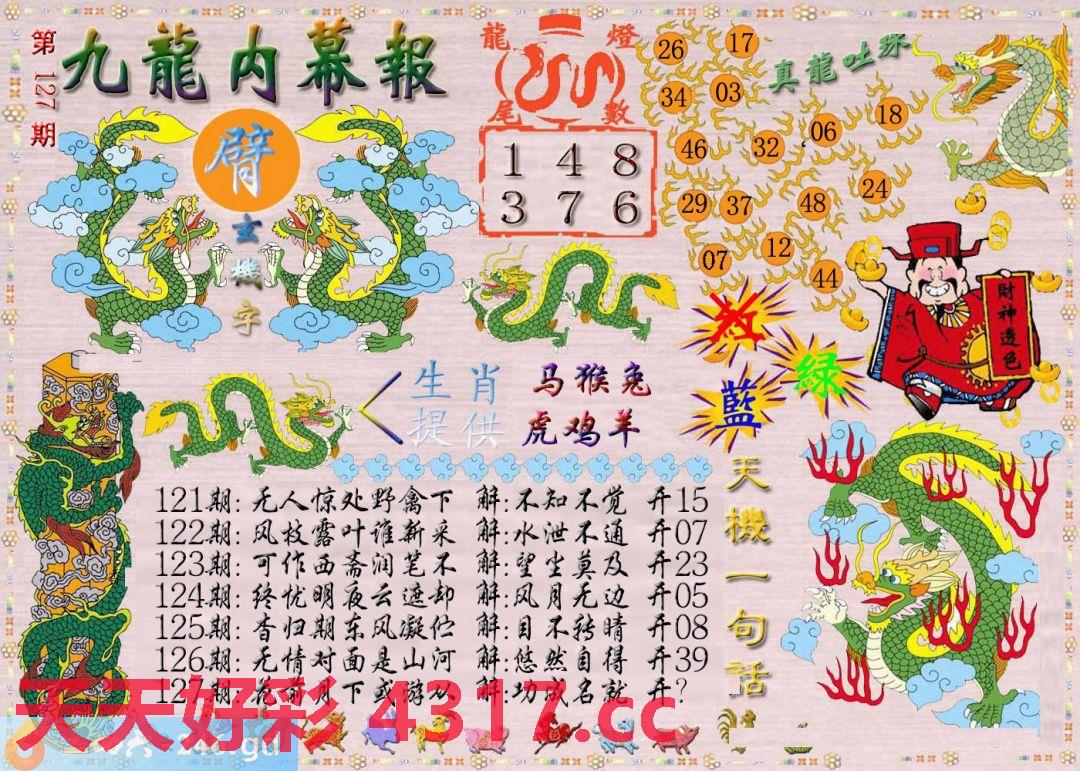 第127期
九龍内幕報
臂
玄機字
龍燈
尾數
1 4 8
3 7 6
26 17
34 03
46 32 06 18
29 37 48 24
07 12 44
真龍吐珠
財神透色
紅
綠
藍
生肖 马猴兔
提供 虎鸡羊
天機一句話
121期: 无人惊处野禽下 解:不知不觉 开15
122期: 风枝露叶谁新采 解:水泄不通 开07
123期: 可作西斋润笔不 解:望尘莫及 开23
124期: 终忧明夜云遮却 解:风月无边 开05
125期: 杳归期东风凝伫 解:目不转睛 开08
126期: 无情对面是山河 解:悠然自得 开39
127期: 花前月下或游从 解:功成名就 开?
天天好彩 4317.cc